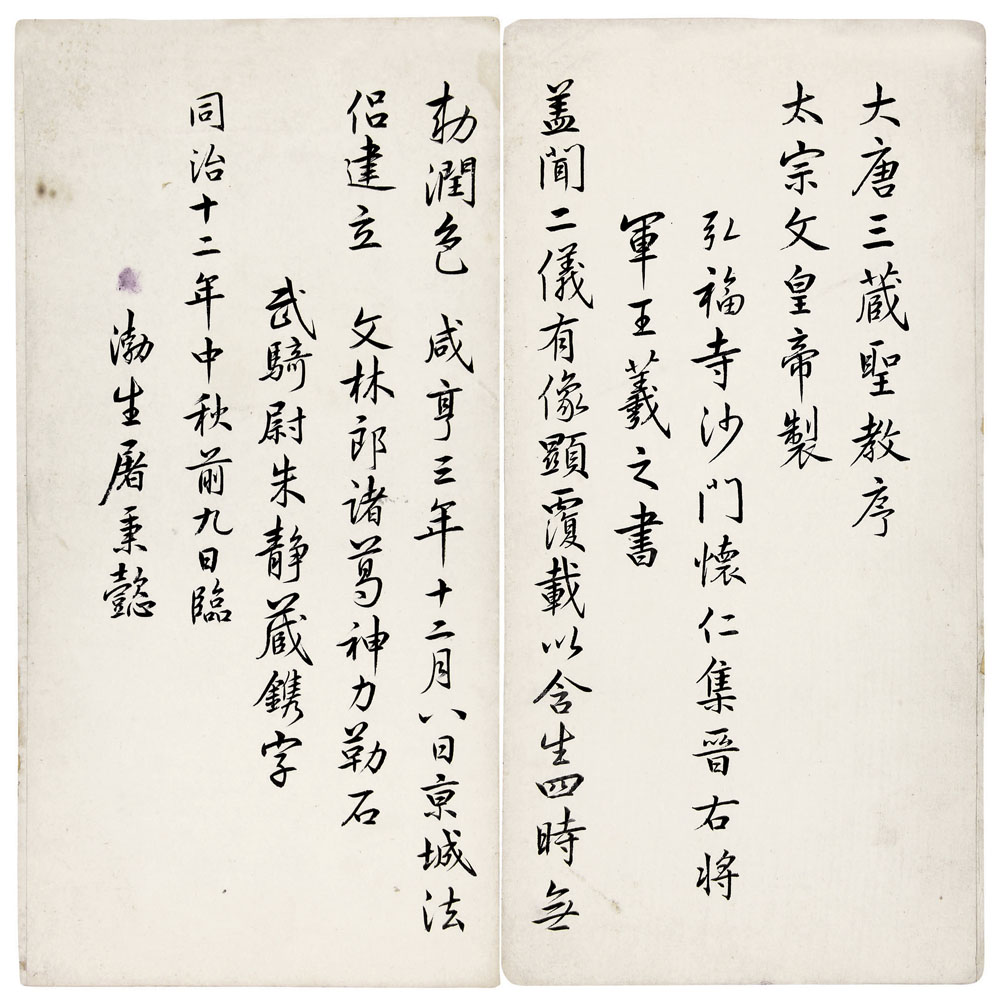 大唐三藏聖教序
太宗文皇帝製
弘福寺沙門懷仁集晉右將
軍王羲之書
蓋聞二儀有像顯覆載以含生四時無
勅潤色 咸亨三年十二月八日京城法
侣建立 文林郎諸葛神力勒石
武騎尉朱静藏鐫字
同治十二年中秋前九日臨
渤生屠秉懿